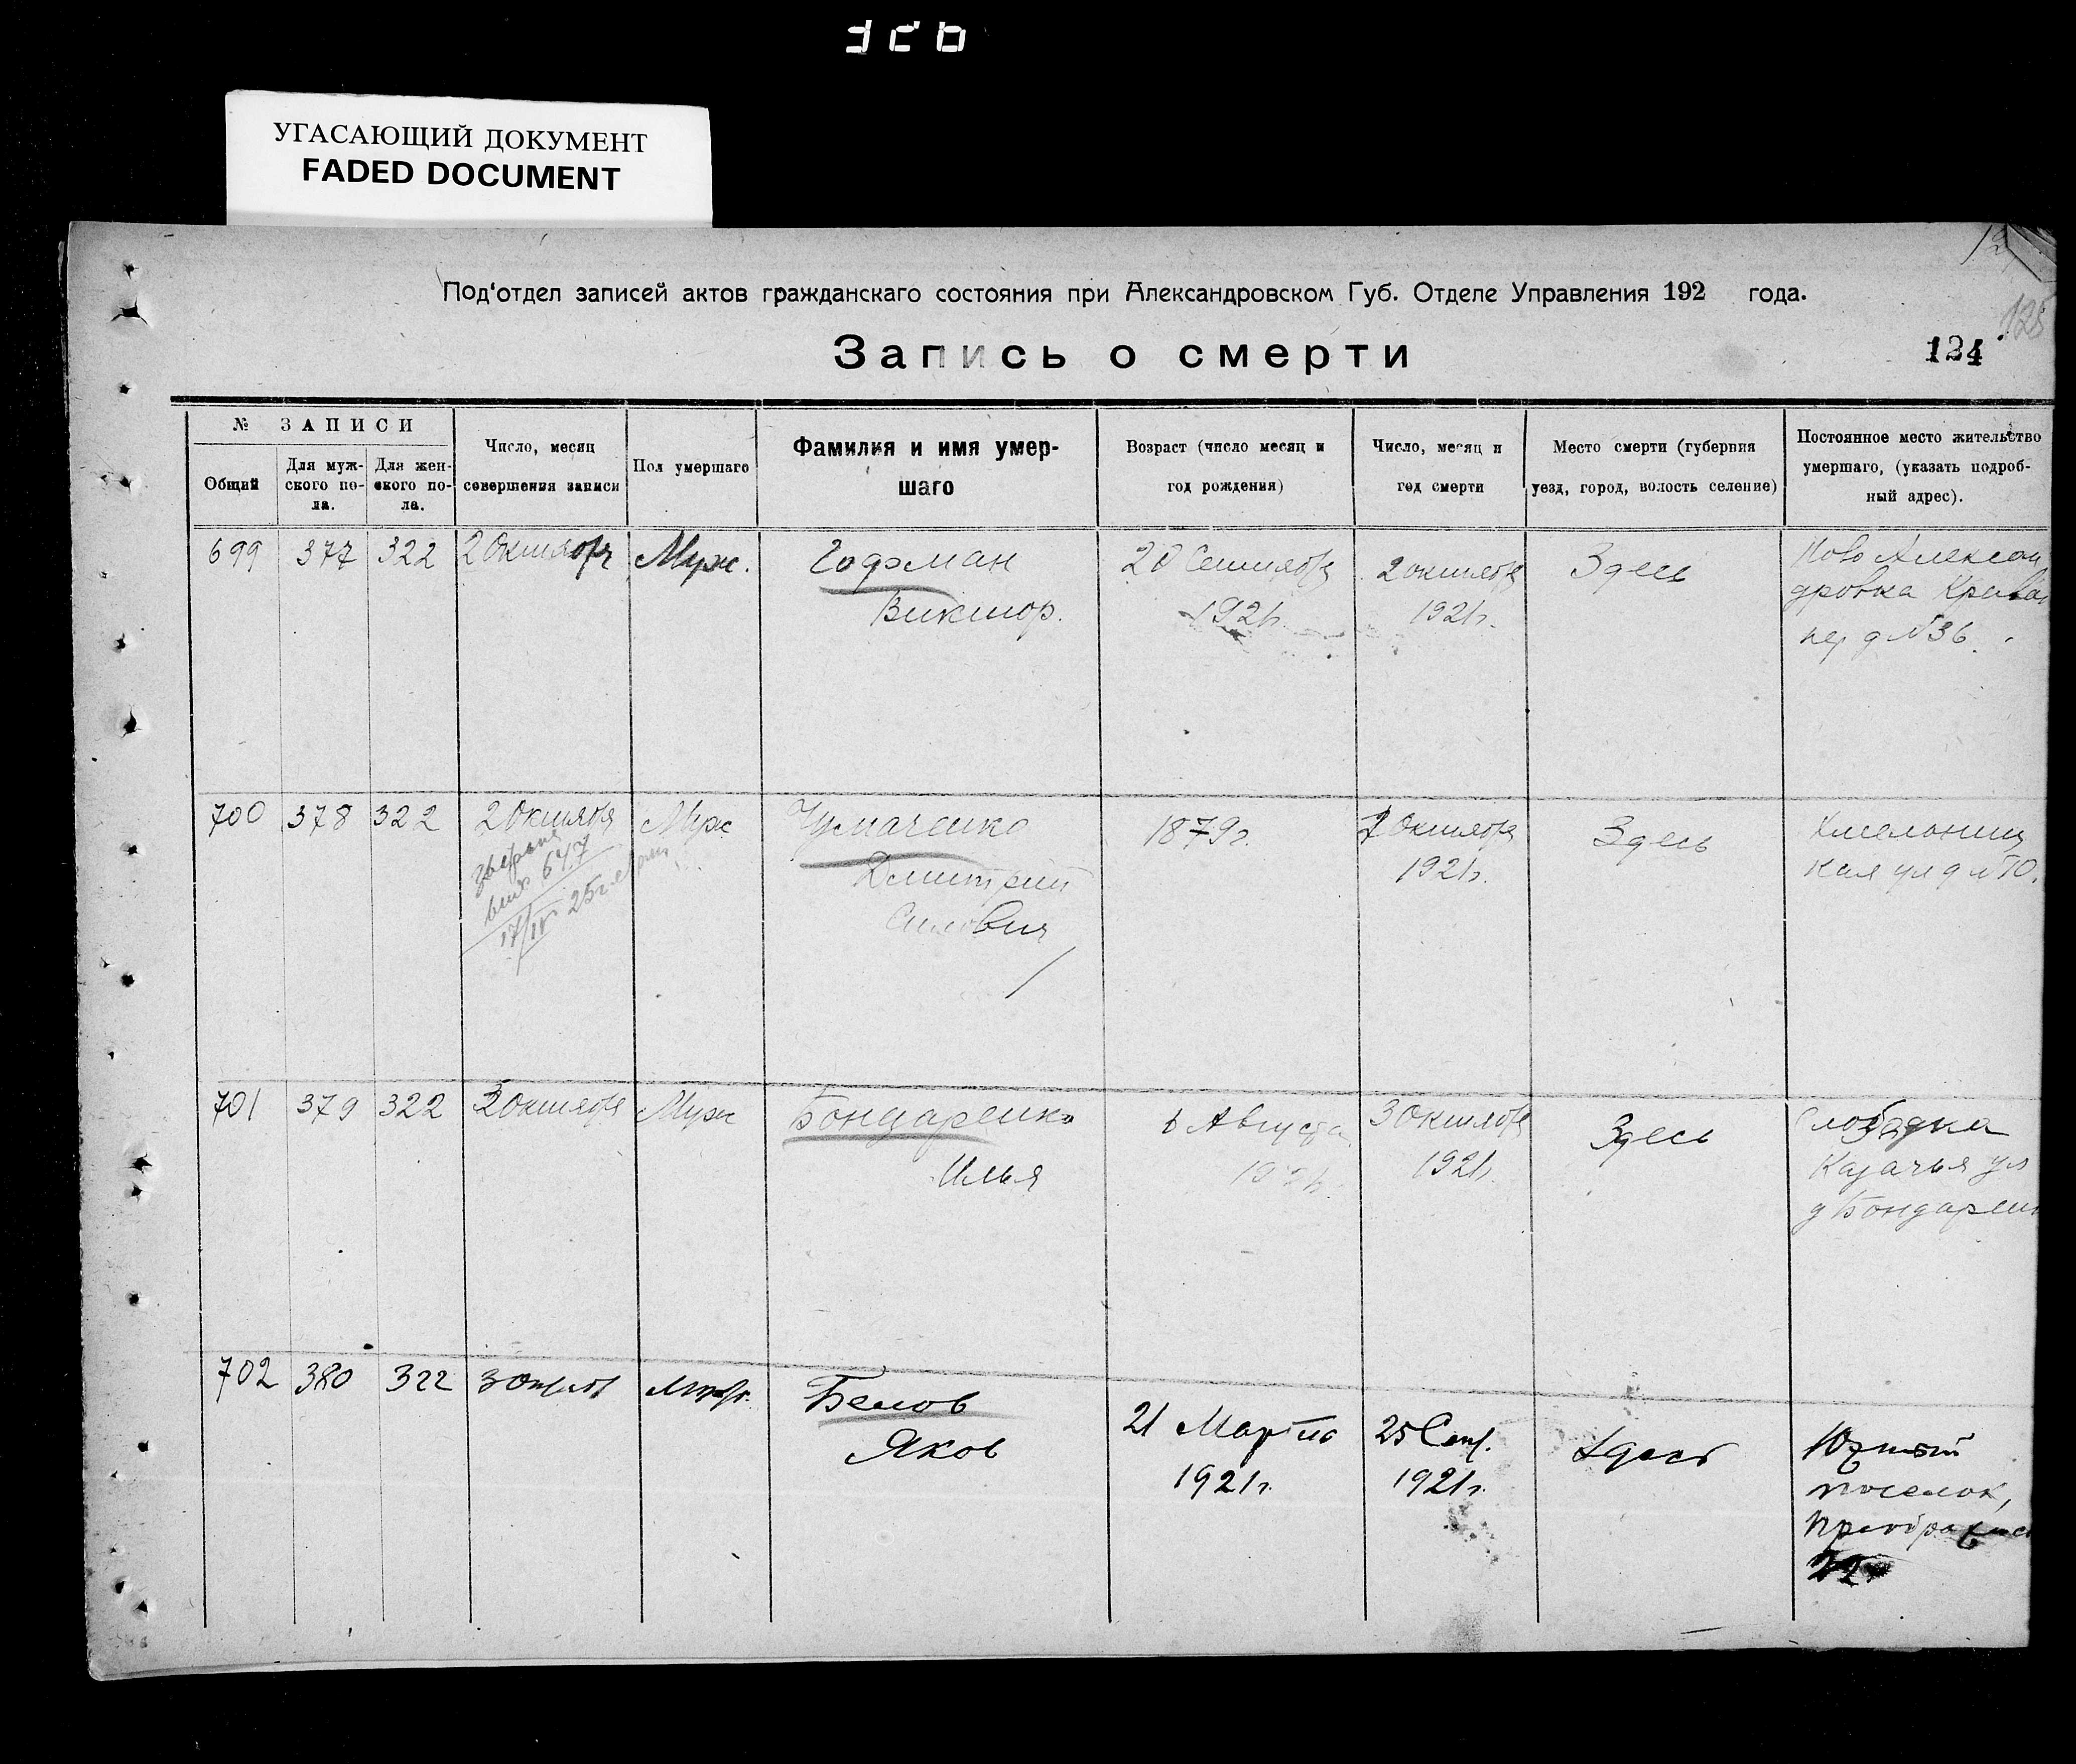 УГАСАЮЩИЙ ДОКУМЕНТ
FADED DOCUMENT
Под'отдел записей актов гражданскаго состояния при Александровском Губ. Отделе Управления 192 года.
125
Запись о смерти
124
№ ЗАПИСИ
Общий
Для муж-
ского по-
ла.
Для жен-
ского по-
ла.
Число, месяц
совершения записи
Пол умершаго
Фамилия и имя умер-
шаго
Возраст (число месяц и
год рождения)
Число, месяц и
год смерти
Место смерти (губерния
уезд, город, волость селение)
Постоянное место жительство
умершаго, (указать подроб-
ный адрес).
699
377
322
2 Октября
Муж.
Гофман
Виктор.
20 Сентября
1921г.
2 октября
1921г.
Здесь
Ново Алексан
дровка Кривой
пер д №36.
700
378
322
2 Октября
647
17/IV 25г.
Муж
Чумаченко
Дмитрий
1879г.
Октября
1921г.
Здесь
кая ул д №10.
701
379
322
3 Октября
Муж
Бондаренко
Илья
6 Августа
1921г.
3 Октября
1921г.
Здесь
Слободка
Казачья ул
д Бондарен
702
380
322
3 Октяб
Муж.
Белов
Яков
21 Марта
1921г.
25 Сент.
1921г.
Здесь
Южный
поселок,
22